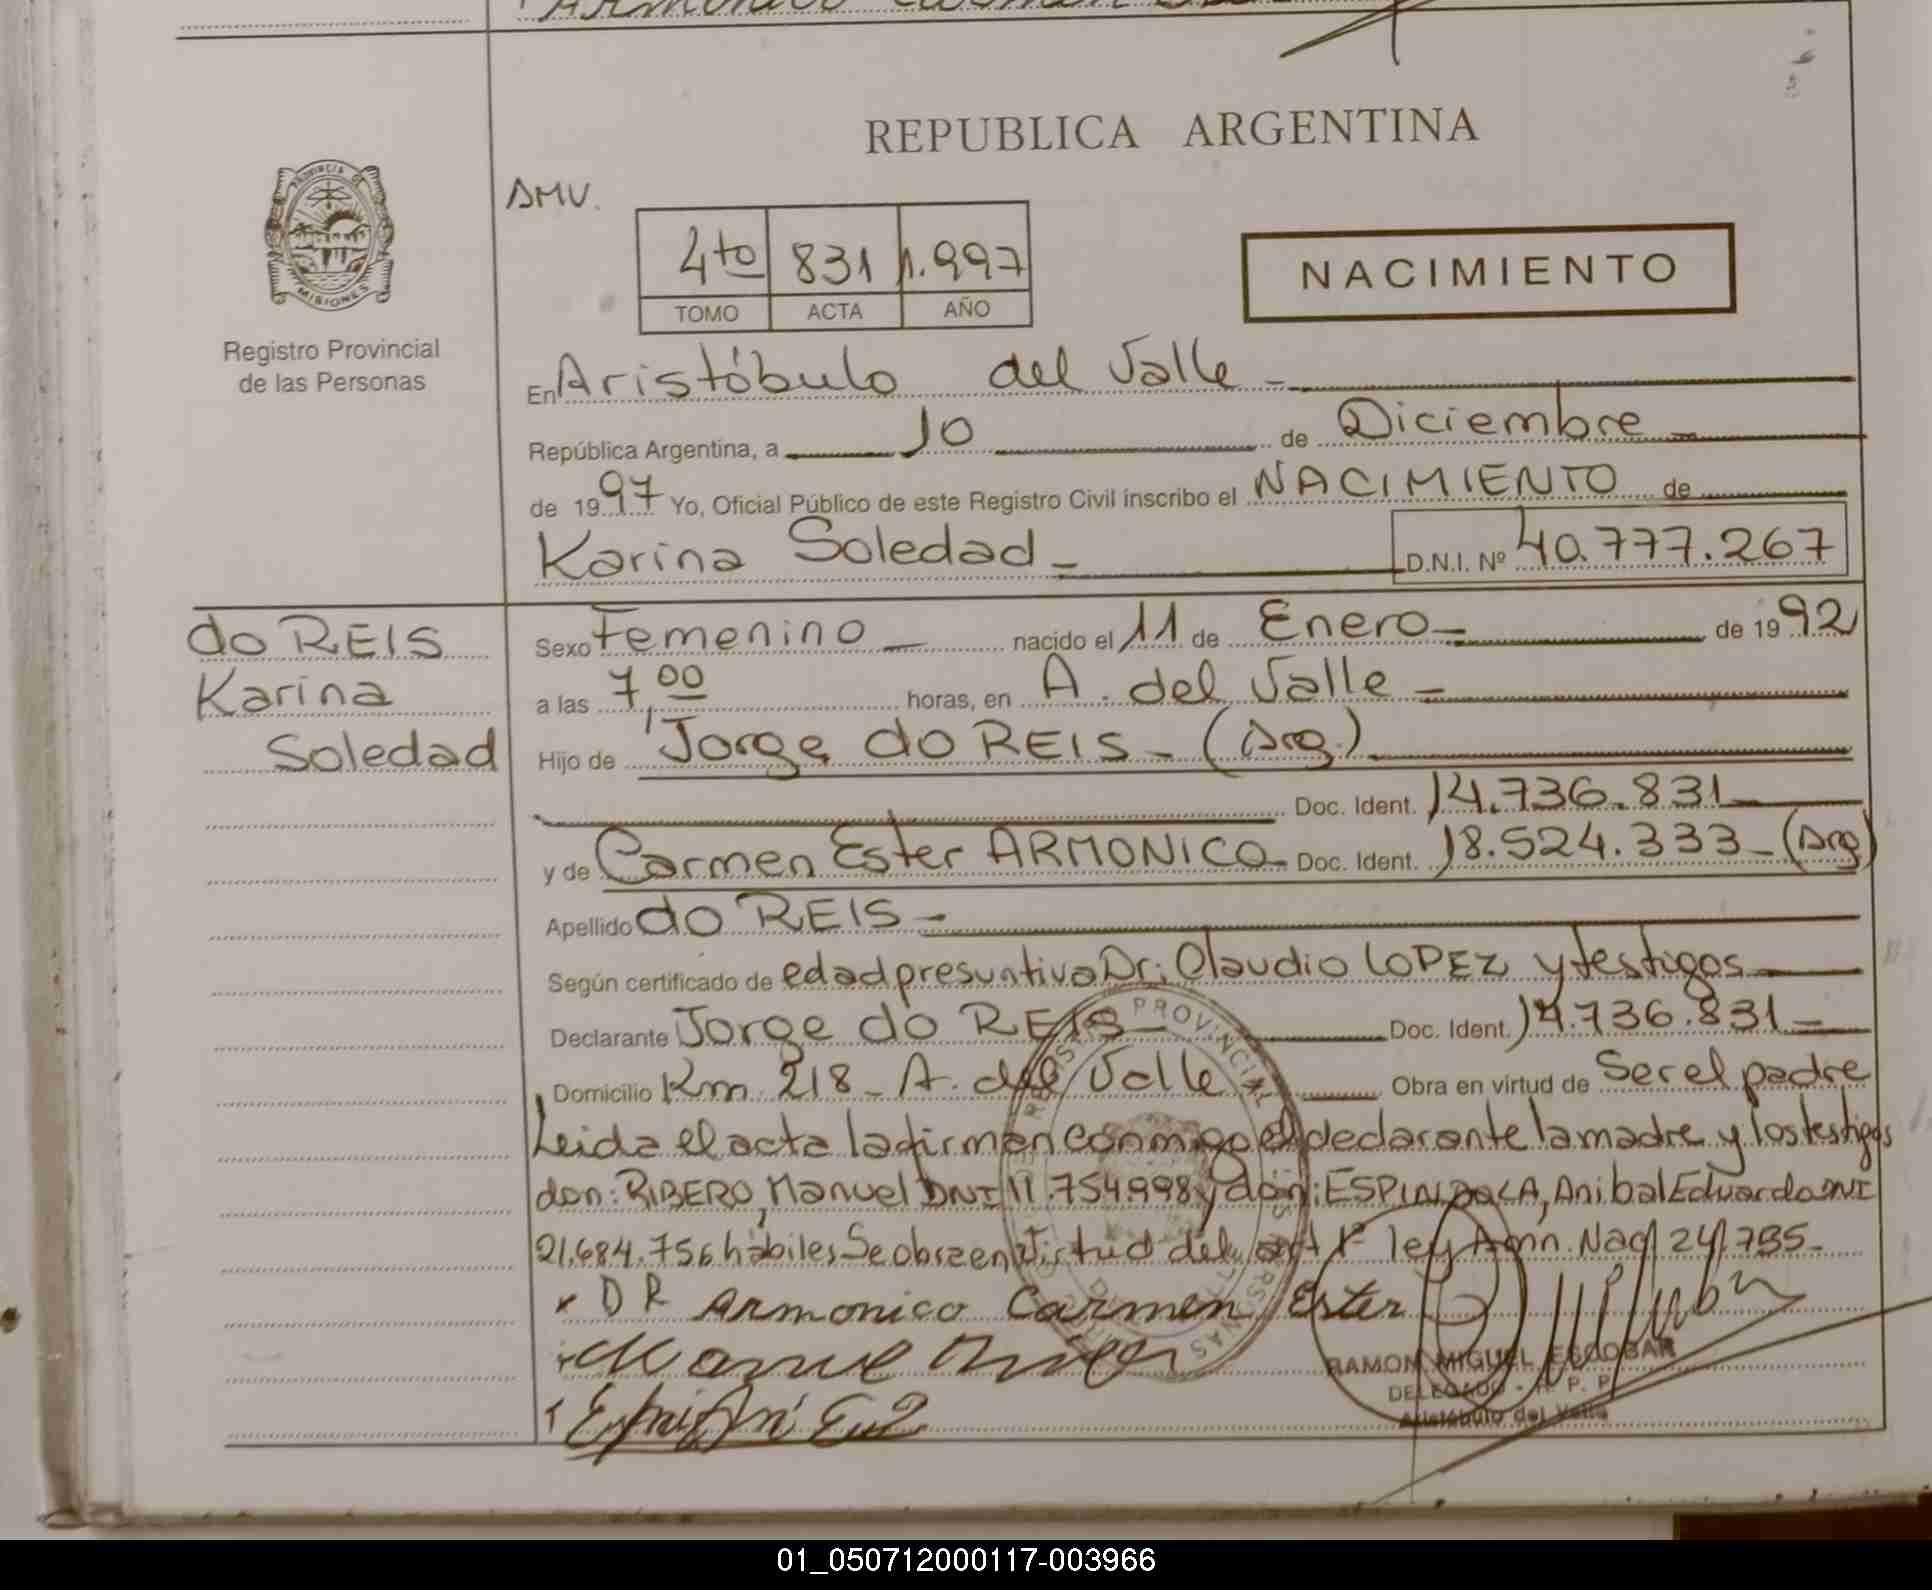 Armonico Carmen
REPUBLICA ARGENTINA
PROVINCIA DE
MISIONES
Registro Provincial
de las Personas
AMV.
4to 831 1.997
TOMO ACTA AÑO
NACIMIENTO
En Aristóbulo del Valle -
República Argentina, a 10 de Diciembre
de 1997 Yo, Oficial Público de este Registro Civil inscribo el NACIMIENTO de
Karina Soledad - D.N.I. Nº 40.777.267
do REIS
Karina
Soledad
Sexo Femenino - nacido el 11 de Enero - de 1992
a las 7,00 horas, en A. del Valle -
Hijo de Jorge do REIS - (Arg.)
Doc. Ident. 14.736.831
y de Carmen Ester ARMONICO - Doc. Ident. 18.524.333 - (Arg)
Apellido do REIS -
Según certificado de edad presuntiva Dr: Claudio LOPEZ y testigos
Declarante Jorge do REIS - Doc. Ident. 14.736.831 -
Domicilio Km. 218 - A. del Valle Obra en virtud de Ser el padre
Leida el acta la firman conmigo el declarante la madre y los testigos
don: RIBERO, Manuel DNI 11.754.998 y don: ESPINDOLA, Anibal Eduardo DNI
21.684.756 hábiles Se obra en virtud del art 1º ley Amn. Nac 24.755 -
x D R Armonico Carmen Ester
Manuel
RAMON MIGUEL ESCOBAR
DELEGADO - R. P. P.
Aristóbulo del Valle
01_050712000117-003966